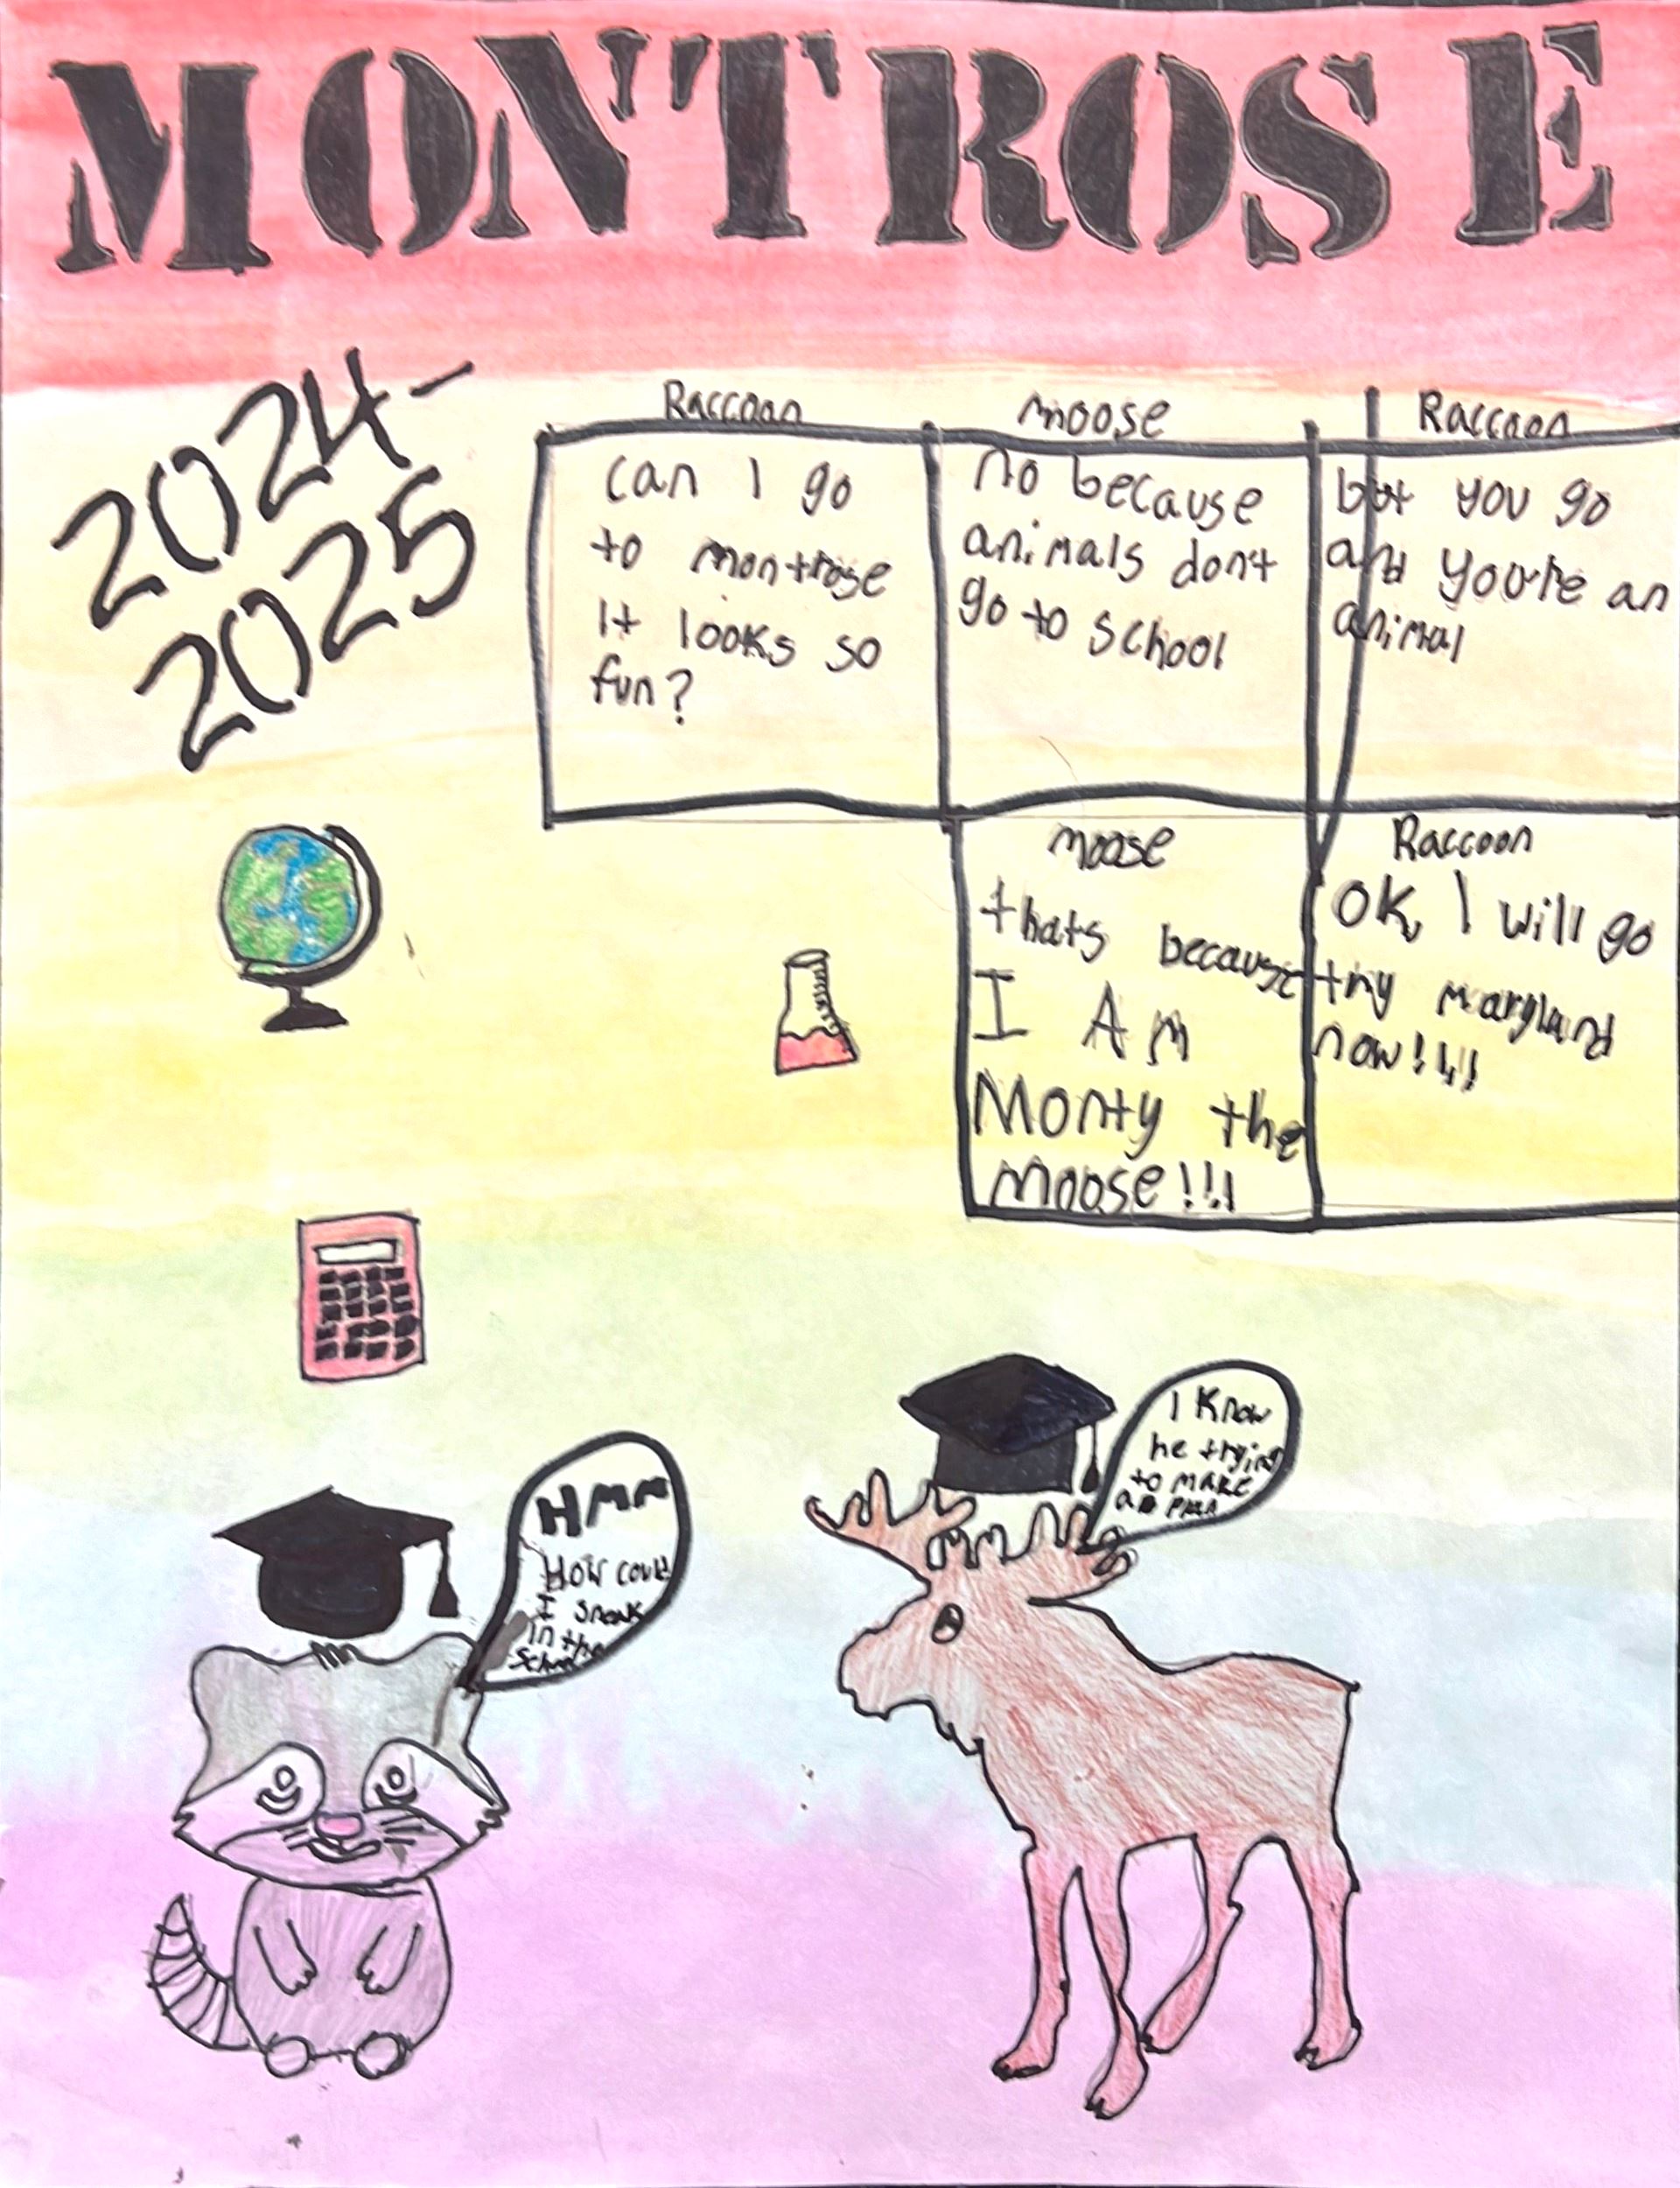 MONTROSE
2024-
2025
Raccoon
can I go
to montrose
It looks so
fun?
moose
no because
animals don't
go to school
Raccoon
but you go
and you're an
animal
moose
thats because
I AM
Monty the
moose!!!
Raccoon
OK, I will go
try maryland
now!!!!
HMM
How could
I sneak
in the
School
I Know
he trying
to make
a plan